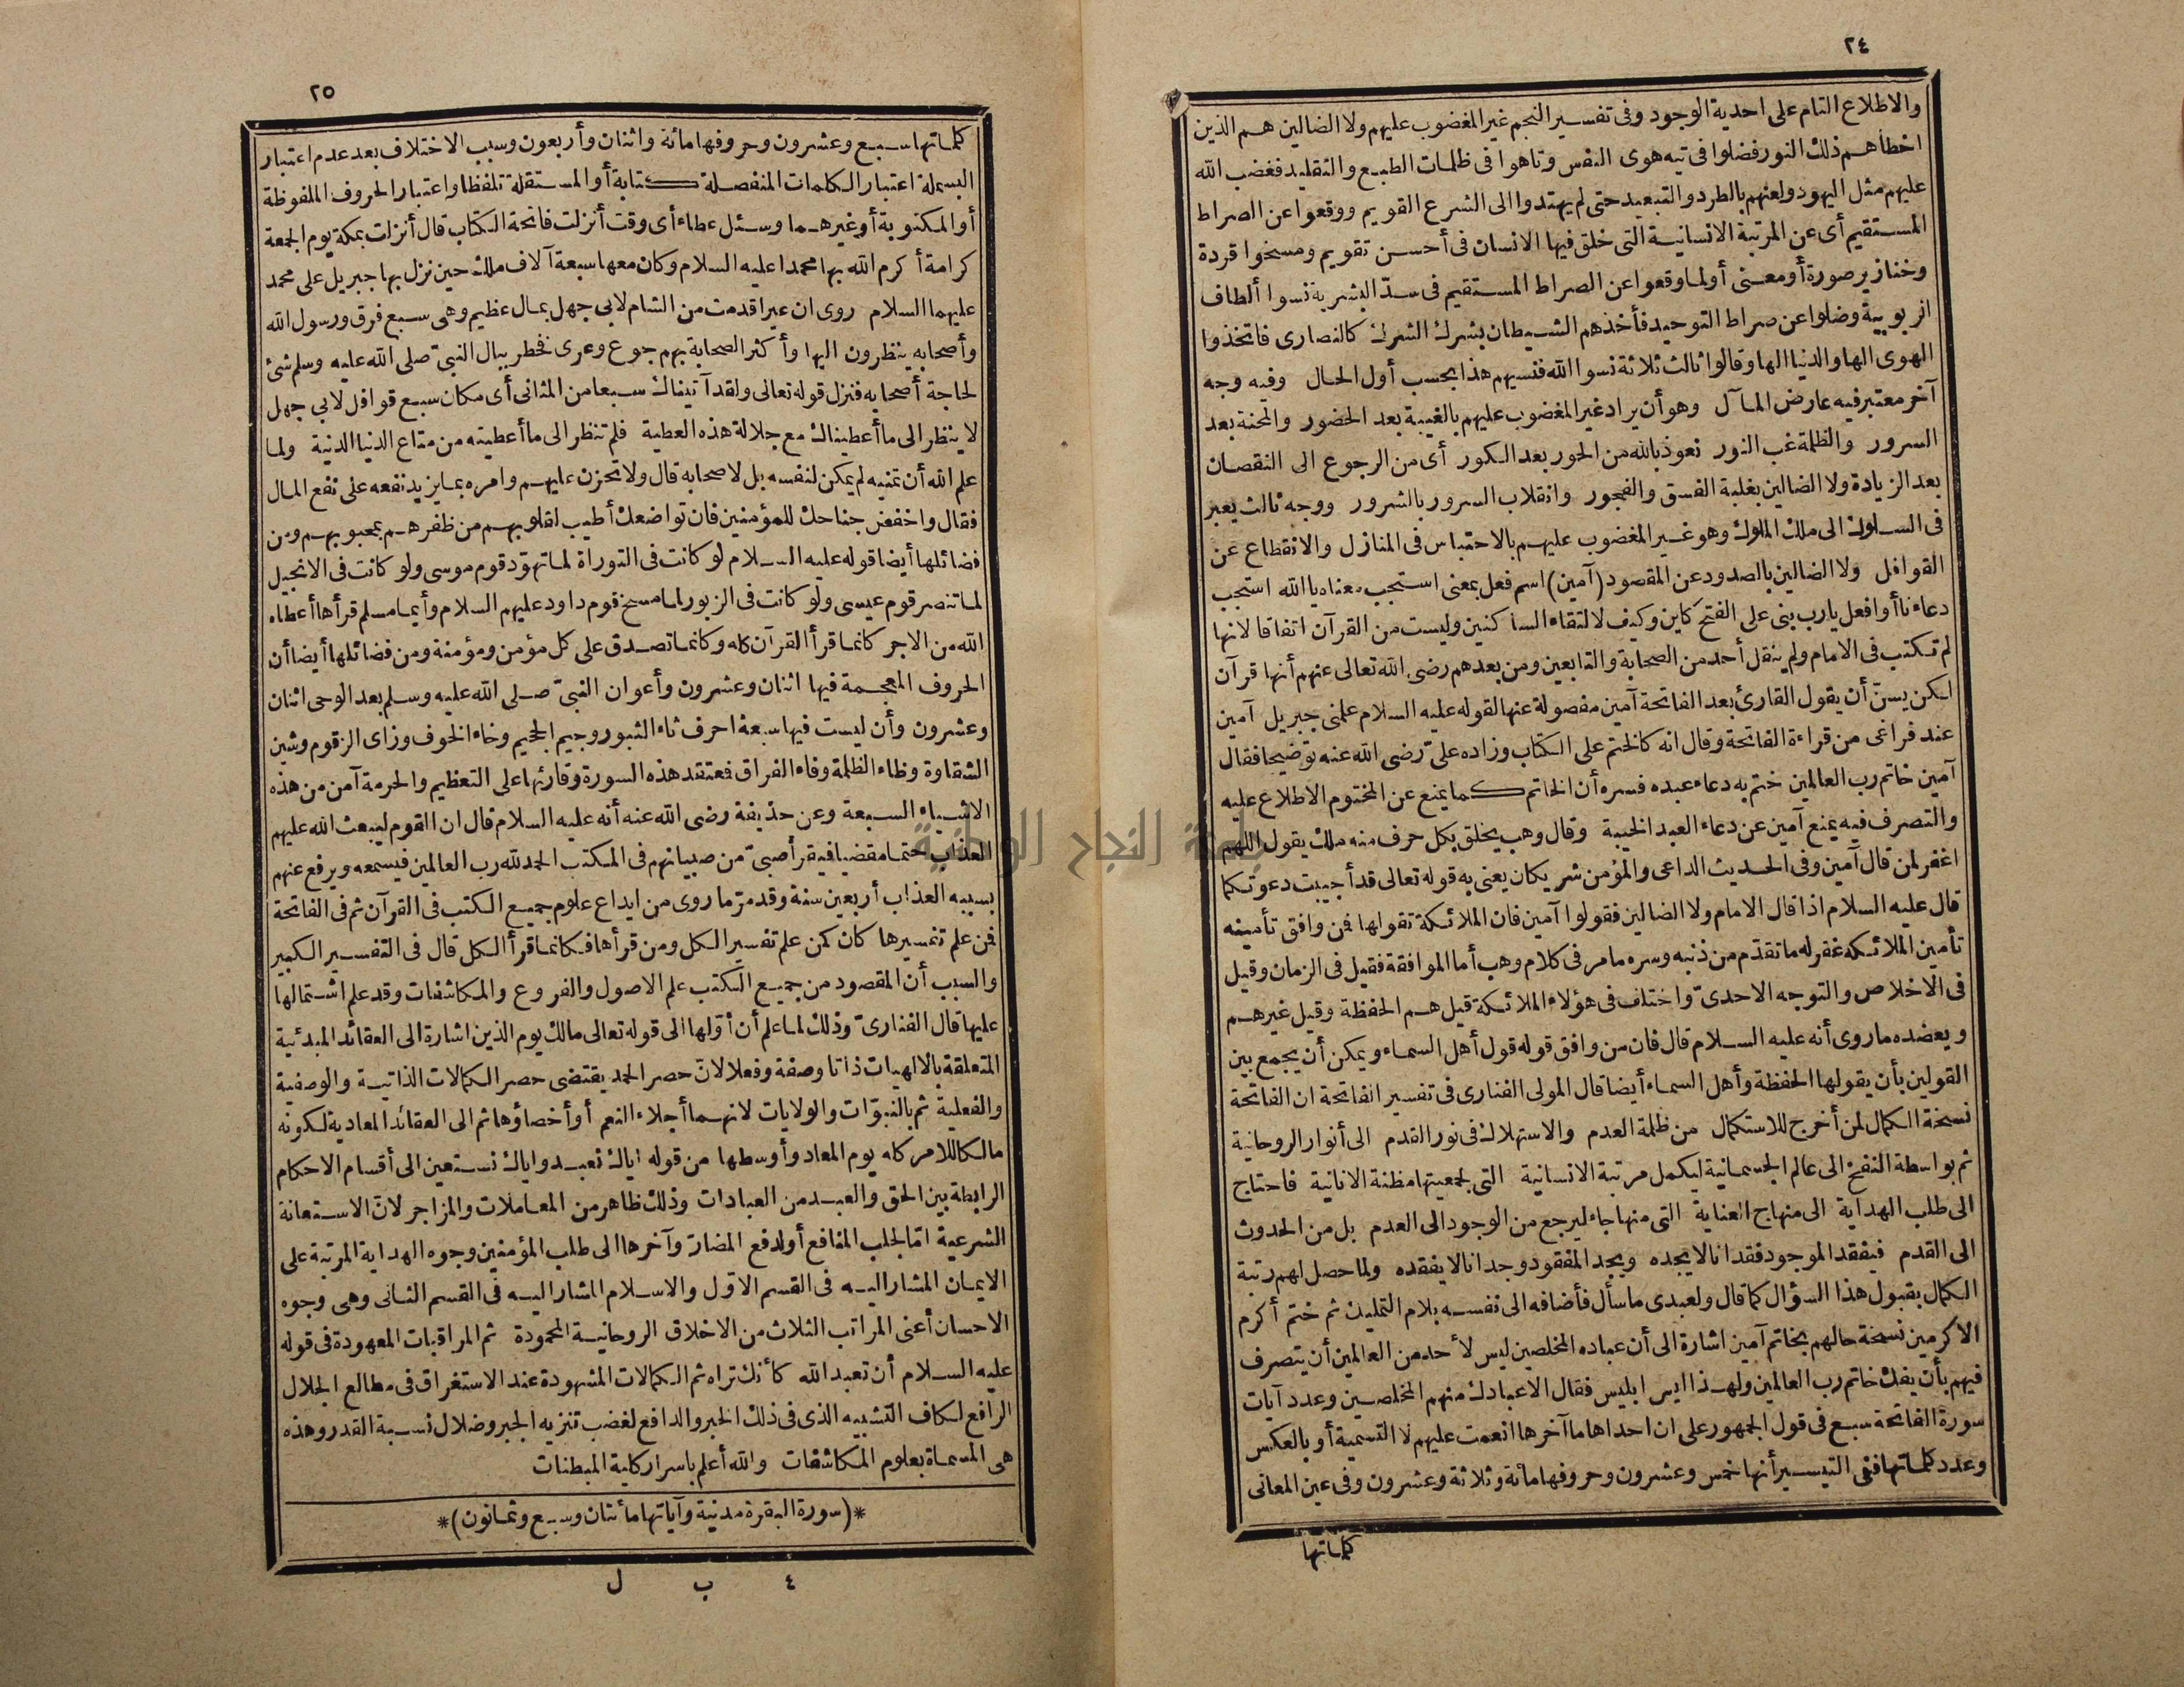 ٢٤
والاطلاع التام على احدية الوجود وفى تفسير النجم غير المغضوب عليهم ولا الضالين هم الذين
اخطأهم ذلك النور فضلوا فى تيه هوى النفس وتاهوا فى ظلمات الطبع والتقليد فغضب الله
عليهم مثل اليهود ولعنهم بالطرد والتبعيد حتى لم يهتدوا الى الشرع القويم ووقعوا عن الصراط
المستقيم أى عن المرتبة الانسانية التى خلق فيها الانسان فى أحسن تقويم ومسخوا قردة
وخنازير صورة أو معنى أو لما وقعوا عن الصراط المستقيم فى سدّ البشرية نسوا ألطاف
الربوبية وضلوا عن صراط التوحيد فأخذهم الشيطان بشرك الشرك كالنصارى فاتخذوا
الهوى الها والدنيا الها وقالوا ثالث ثلاثة نسوا الله فنسيهم هذا بحسب أول الحال وفيه وجه
آخر معتبر فيه عارض المآل وهو أن يراد غير المغضوب عليهم بالغيبة بعد الحضور والمحنة بعد
السرور والظلمة غب النور نعوذ بالله من الحور بعد الكور أى من الرجوع الى النقصان
بعد الزيادة ولا الضالين بغلبة الفسق والفجور وانقلاب السرور بالشرور ووجه ثالث يعبر
فى السلوك الى ملك الملوك وهو غير المغضوب عليهم بالاحتباس فى المنازل والانقطاع عن
القوافل ولا الضالين بالصدود عن المقصود (آمين) اسم فعل بمعنى استجب معناه يا الله استجب
دعاءنا أو افعل يا رب بنى على الفتح كاين وكيف لالتقاء الساكنين وليست من القرآن اتفاقا لانها
لم تكتب فى الامام ولم ينقل أحد من الصحابة والتابعين ومن بعدهم رضى الله تعالى عنهم أنها قرآن
لكن يسنّ أن يقول القارئ بعد الفاتحة آمين مفصولة عنها لقوله عليه السلام علمنى جبريل آمين
عند فراغى من قراءة الفاتحة وقال انه كالختم على الكتاب وزاده علىّ رضى الله عنه توضيحا فقال
آمين خاتم رب العالمين ختم به دعاء عبده فسره أن الخاتم كما يمنع عن المختوم الاطلاع عليه
والتصرف فيه يمنع آمين عن دعاء العبد الخيبة وقال وهب يخلق بكل حرف منه ملك يقول اللهم
اغفر لمن قال آمين وفى الحديث الداعى والمؤمن شريكان يعنى به قوله تعالى قد أجيبت دعوتكما
قال عليه السلام اذا قال الامام ولا الضالين فقولوا آمين فان الملائكة تقولها فمن وافق تأمينه
تأمين الملائكة غفر له ما تقدّم من ذنبه وسره ما مر فى كلام وهب أما الموافقة فقيل فى الزمان وقيل
فى الاخلاص والتوجه الاحدىّ واختلف فى هؤلاء الملائكة قيل هم الحفظة وقيل غيرهم
ويعضده ما روى أنه عليه السلام قال فان من وافق قوله قول أهل السماء ويمكن أن يجمع بين
القولين بأن يقولها الحفظة وأهل السماء أيضا قال المولى الفنارى فى تفسير الفاتحة ان الفاتحة
نسخة الكمال لمن أخرج للاستكمال من ظلمة العدم والاستهلاك فى نور القدم الى أنوار الروحانية
ثم بواسطة النفخ الى عالم الجسمانية ليكمل مرتبة الانسانية التى لجمعيتها مظنة الانانية فاحتاج
الى طلب الهداية الى منهاج العناية التى منها جاء ليرجع من الوجود الى العدم بل من الحدوث
الى القدم فيفقد الموجود فقدانا لا يجده ويجد المفقود وجدانا لا يفقده ولما حصل لهم رتبة
الكمال بقبول هذا السؤال كما قال ولعبدى ما سأل فأضافه الى نفسه بلام التمليك ثم ختم أكرم
الاكرمين نسخة حالهم بخاتم آمين اشارة الى أن عباده المخلصين ليس لأحد من العالمين أن يتصرف
فيهم بأن يفك خاتم رب العالمين ولهذا ايس ابليس فقال الا عبادك منهم المخلصين وعدد آيات
سورة الفاتحة سبع فى قول الجمهور على ان احداها ما آخرها انعمت عليهم لا التسمية أو بالعكس
وعدد كلماتها ففى التيسير أنها خمس وعشرون وحروفها مائة وثلاثة وعشرون وفى عين المعانى
كلماتها
٢٥
كلماتها سبع وعشرون وحروفها مائة واثنان وأربعون وسبب الاختلاف بعد عدم اعتبار
البسملة اعتبار الكلمات المنفصلة كتابة أو المستقلة تلفظا واعتبار الحروف الملفوظة
أو المكتوبة أو غيرهما وسئل عطاء أى وقت أنزلت فاتحة الكتاب قال أنزلت بمكة يوم الجمعة
كرامة أكرم الله بها محمدا عليه السلام وكان معها سبعة آلاف ملك حين نزل بها جبريل على محمد
عليهما السلام روى ان عيرا قدمت من الشام لابى جهل بمال عظيم وهى سبع فرق ورسول الله
وأصحابه ينظرون اليها وأكثر الصحابة بهم جوع وعرى فخطر ببال النبىّ صلى الله عليه وسلم شئ
لحاجة أصحابه فنزل قوله تعالى ولقد آتيناك سبعا من المثانى أى مكان سبع قوافل لابى جهل
لا ينظر الى ما أعطيناك مع جلالة هذه العطية فلم تنظر الى ما أعطيته من متاع الدنيا الدنية ولما
علم الله أن تمنيه لم يكن لنفسه بل لاصحابه قال ولا تحزن عليهم وامره بما يزيد نفعه على نفع المال
فقال واخفض جناحك للمؤمنين فان تواضعك أطيب لقلوبهم من ظفرهم بمحبوبهم ومن
فضائلها أيضا قوله عليه السلام لو كانت فى التوراة لما تهوّد قوم موسى ولو كانت فى الانجيل
لما تنصر قوم عيسى ولو كانت فى الزبور لما مسخ قوم داود عليهم السلام وأيما مسلم قرأها أعطاه
الله من الاجر كانما قرأ القرآن كله وكانما تصدق على كل مؤمن ومؤمنة ومن فضائلها أيضا أن
الحروف المعجمة فيها اثنان وعشرون وأعوان النبىّ صلى الله عليه وسلم بعد الوحى اثنان
وعشرون وأن ليست فيها سبعة احرف ثاء الثبور وجيم الجحيم وخاء الخوف وزاى الزقوم وشين
الشقاوة وظاء الظلمة وفاء الفراق فمعتقد هذه السورة وقارئها على التعظيم والحرمة آمن من هذه
الاشياء السبعة وعن حذيفة رضى الله عنه أنه عليه السلام قال ان القوم ليبعث الله عليهم
العذاب حتما مقضيا فيقرأ صبىّ من صبيانهم فى المكتب الحمد لله رب العالمين فيسمعه ويرفع عنهم
بسببه العذاب أربعين سنة وقد مرّ ما روى من ايداع علوم جميع الكتب فى القرآن ثم فى الفاتحة
فمن علم تفسيرها كان كمن علم تفسير الكل ومن قرأها فكانما قرأ الكل قال فى التفسير الكبير
والسبب أن المقصود من جميع الكتب علم الاصول والفروع والمكاشفات وقد علم اشتمالها
عليها قال الفنارىّ وذلك لما علم أن أوّلها الى قوله تعالى مالك يوم الدين اشارة الى العقائد المبدئية
المتعلقة بالالهيات ذاتا وصفة وفعلا لانّ حصر الحمد يقتضى حصر الكمالات الذاتية والوصفية
والفعلية ثم بالنبوّات والولايات لانهما أجلاء النعم أو أخصاؤها ثم الى العقائد المعادية لكونه
مالكا للامر كله يوم المعاد وأوسطها من قوله اياك نعبد واياك نستعين الى أقسام الاحكام
الرابطة بين الحق والعبد من العبادات وذلك ظاهر من المعاملات والمزاجر لانّ الاستعانة
الشرعية امّا لجلب المنافع أو لدفع المضارّ وآخرها الى طلب المؤمنين وجوه الهداية المرتبة على
الايمان المشار اليه فى القسم الاوّل والاسلام المشار اليه فى القسم الثانى وهى وجوه
الاحسان أعنى المراتب الثلاث من الاخلاق الروحانية المحمودة ثم المراقبات المعهودة فى قوله
عليه السلام أن تعبد الله كأنك تراه ثم الكمالات المشهودة عند الاستغراق فى مطالع الجلال
الرافع لكاف التشبيه الذى فى ذلك الخبر والدافع لغضب تنزيه الجبر وضلال نسبة القدر وهذه
هى المسماة بعلوم المكاشفات والله أعلم باسرار كلية المبطنات
*(سورة البقرة مدنية وآياتها مائتان وسبع وثمانون)*
٤ ب ل
جامعة النجاح الوطنية